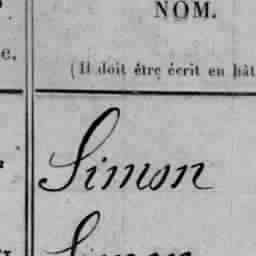 NOM.
(Il doit être écrit en bât
Simon
Simon